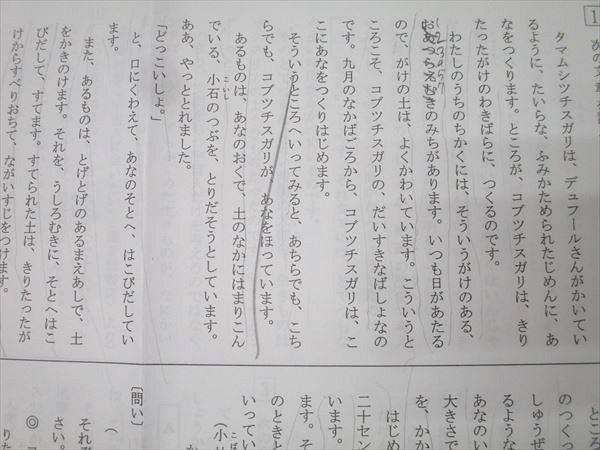 1
次の文章を
タマムシツチスガリは、デュフールさんがかいてい
るように、たいらな、ふみかためられたじめんに、あ
なをつくります。ところが、コブツチスガリは、きり
たったがけのわきばらに、つくるのです。
わたしのうちのちかくには、そういうがけのある、
おあつらえむきのみちがあります。いつも日があたる
ので、がけの土は、よくかわいています。こういうと
ころこそ、コブツチスガリの、だいすきなばしょなの
です。九月のなかばごろから、コブツチスガリは、こ
こにあなをつくりはじめます。
そういうところへいってみると、あちらでも、こち
らでも、コブツチスガリが、あなをほっています。
あるものは、あなのおくで、土のなかにはまりこん
でいる、小石のつぶを、とりだそうとしています。
こいし
ああ、やっととれました。
「どっこいしょ。」
と、口にくわえて、あなのそとへ、はこびだしてい
ます。
また、あるものは、とげとげのあるまえあしで、土
をかきのけます。それを、うしろむきに、そとへはこ
びだして、すてます。すてられた土は、きりたったが
けからすべりおちて、ながいすじをつけます。
ところ
のつくっ
しゅうぜ
るような
あなのい
大きさで
を、かか
はじめ
二十セン
います。
ます。そ
のときと
いってい
（小
〔問い〕
（
それ
さい。
◎